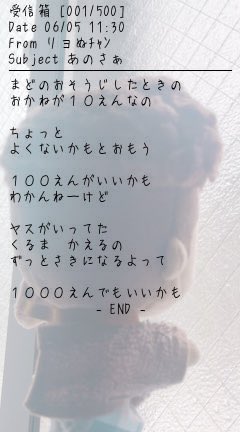 受信箱 [001/500]
Date 06/05 11:30
From リョぬチャン
Subject あのさぁ
まどのおそうじしたときの
おかねが１０えんなの
ちょっと
よくないかもとおもう
１００えんがいいかも
わかんねーけど
ヤスがいってた
くるま　かえるの
ずっとさきになるよって
１０００えんでもいいかも
- END -